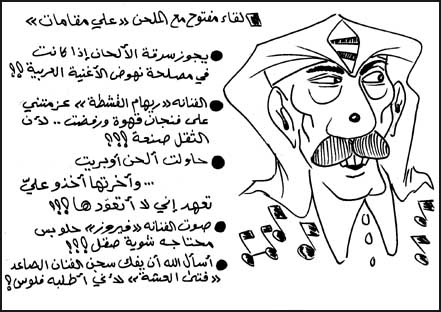 لقاء مفتوح مع الملحن «علي مقامات»
● يجوز سرقة الألحان إذا كانت
في مصلحة نهوض الأغنية العربية !!؟
● الفنانه «ريهام القشطة» عزمتني
على فنجان قهوة ورفضت .. لأن
الثقل صنعة !؟؟
● حاولت ألحن أوبريت
... وأخرتها أخذو عليّ
تعهد إني لا أتعود ها !؟؟
● صوت الفنانه «فيروز» حلو بس
محتاجه شوية صقل !؟؟
● أسأل الله أن يفك سجن الفنان الصاعد
«فتى العشة» لأني أطلبه فلوس ؟